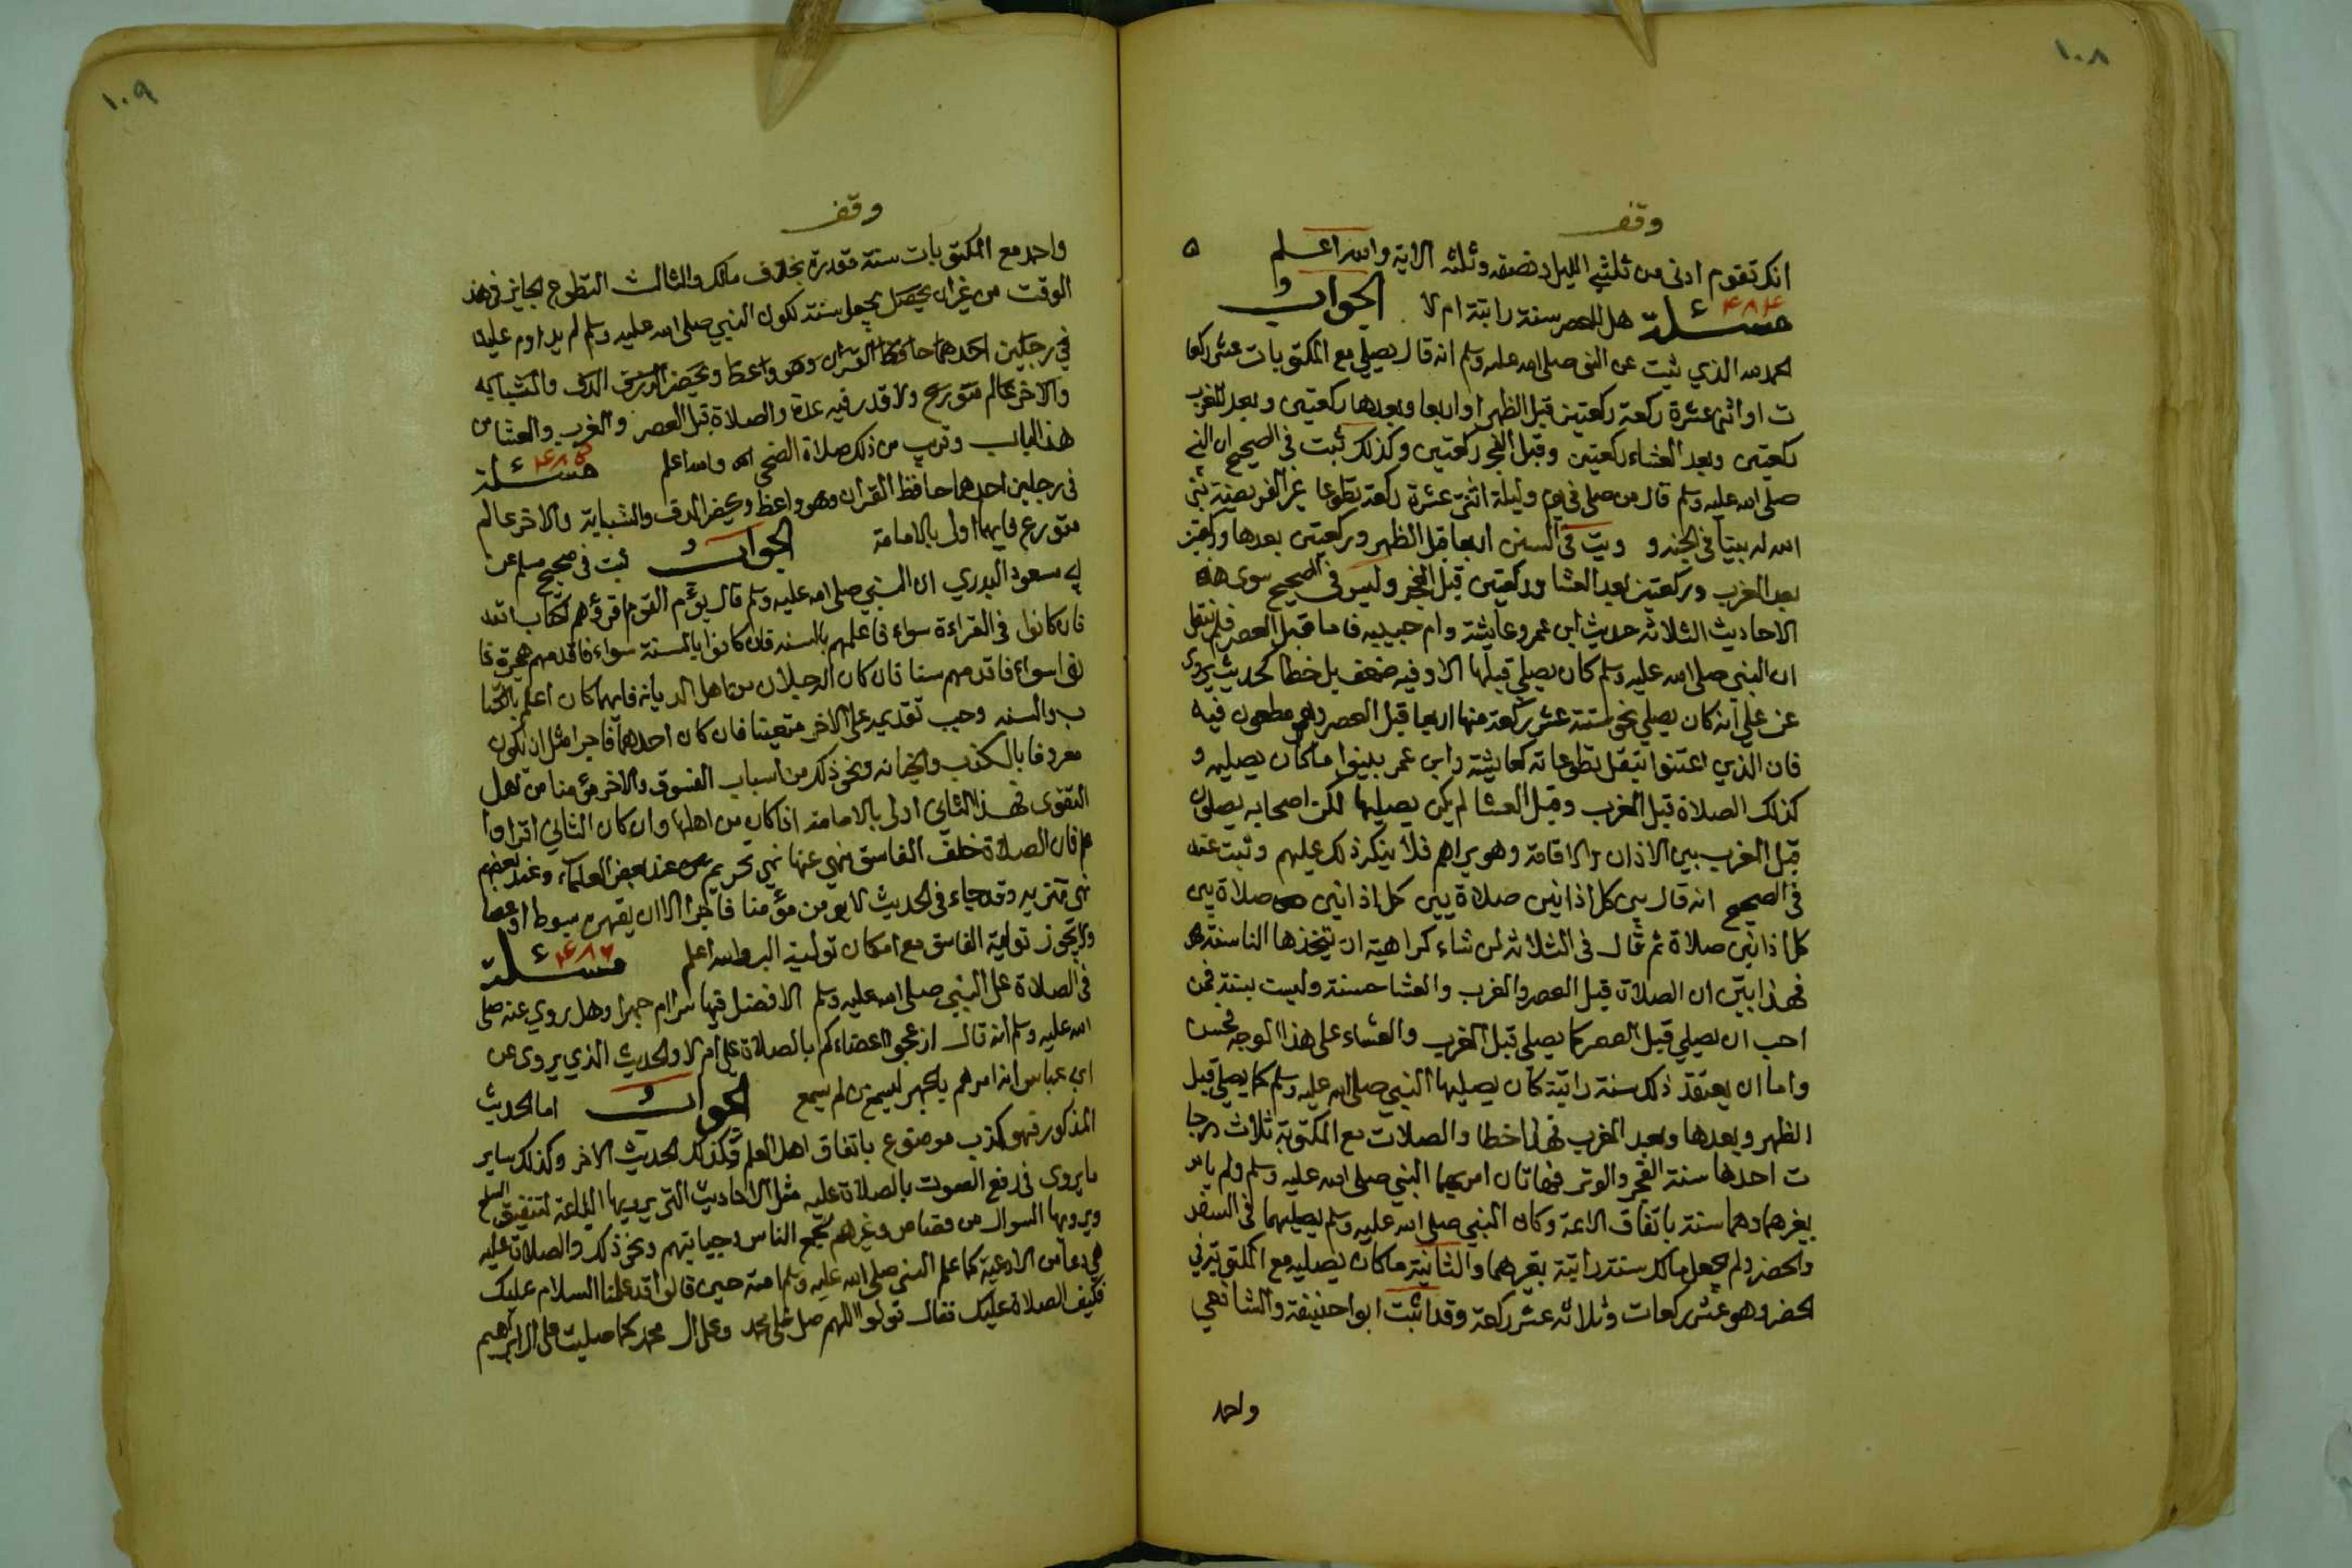 ١٠٨
وقف
انك تقوم ادنى من ثلثي الليل ونصفه وثلثه الاية والله اعلم
٤٨٤
مسئلة هل للعصر سنة راتبة ام لا الجواب
الحمد لله الذي ثبت عن النبي صلى الله عليه وسلم انه قال يصلي مع المكتوبات عشر ركعا
ت او اثنى عشرة ركعة ركعتين قبل الظهر او اربعا وبعدها ركعتين وبعد المغرب
ركعتين وبعد العشاء ركعتين وقبل الفجر ركعتين وكذلك ثبت في الصحيح ان النبي
صلى الله عليه وسلم قال من صلى في يوم وليلة اثنتى عشرة ركعة تطوعا غير الفريضة بنى
الله له بيتا في الجنة و في السنن اربعا قبل الظهر وركعتين بعدها وركعتين
بعد المغرب وركعتين بعد العشا وركعتين قبل الفجر وليس في الصحيح سوى هذه
الاحاديث الثلاثة حديث ابن عمر وعايشة وام حبيبه فاما قبل العصر فلم ينقل
ان النبي صلى الله عليه وسلم كان يصلي قبلها الا وفيه ضعف بل خطا كحديث يروى
عن علي انه كان يصلي نحو ستة عشر ركعة منها اربعا قبل العصر وهو مطعون فيه
فان الذي اعتنوا بنقل تطوعاته كعايشة وابن عمر بينوا ما كان يصليه و
كذلك الصلاة قبل المغرب وقبل العشا لم يكن يصليها لكن اصحابه يصلون
قبل المغرب بين الاذان والاقامة وهو يراهم فلا ينكر ذلك عليهم وثبت عنه
في الصحيح انه قال بين كل اذانين صلاة بين كل اذانين صلاة بين
كل اذانين صلاة ثم قال في الثلاثة لمن شاء كراهية ان يتخذها الناس سنة
فهذا يبين ان الصلاة قبل العصر والمغرب والعشا حسنة وليست بسنة فمن
احب ان يصلي قبل العصر كما يصلي قبل المغرب والعشاء على هذا الوجه فحسن
واما ان يعتقد ذلك سنة راتبة كان يصليها النبي صلى الله عليه وسلم كما يصلي قبل
الظهر وبعدها وبعد المغرب فهذا خطا والصلات مع المكتوبة ثلاث درجا
ت احدها سنة الفجر والوتر فهاتان امر بهما النبي صلى الله عليه وسلم ولم يامر
بغيرهما وهما سنة باتفاق الائمة وكان النبي صلى الله عليه وسلم يصليهما في السفر
والحضر ولم يجعل مالك سنة راتبة بغيرهما والثانية ما كان يصليه مع المكتوبة في
الحضر وهو عشر ركعات وثلاثة عشر ركعة وقد اثبت ابوا حنيفة والشافعي
واحمد
١٠٩
وقف
واحمد مع المكتوبات سنة مقدرة بخلاف مالك والثالث التطوع الجايز في هذ
الوقت من غير ان يجعل سنة لكون النبي صلى الله عليه وسلم لم يداوم عليه
في رجلين احدهما حافظ القران وهو واعظ ويحضر الدف والشبابه
والاخر عالم متورع ولا قدر فيه عدة والصلاة قبل العصر والمغرب والعشا من
هذا الباب وقريب من ذلك صلاة الضحى والله اعلم
٤٨٥
مسئلة
في رجلين احدهما حافظ القران وهو واعظ ويحضر الدف والشبابة والاخر عالم
متورع فايهما اولى بالامامة الجواب ثبت في صحيح مسلم عن
ابي مسعود البدري ان النبي صلى الله عليه وسلم قال يؤم القوم اقرؤهم لكتاب الله
فان كانوا في القراءة سواء فاعلمهم بالسنه فان كانوا بالسنة سواء فاقدمهم هجرة فا
ن كانوا سواء فاقدمهم سنا فان كان الرجلان من اهل الديانه فايهما كان اعلم بالكتا
ب والسنه وجب تقديمه على الاخر متعينا فان كان احدهما فاجرا مثل ان يكون
معروفا بالكذب والخيانه ونحو ذلك من اسباب الفسوق والاخر مؤمنا من اهل
التقوى فهذا الثاني اولى بالامامة اذا كان من اهلها وان كان الثاني اقراوا
علم فان الصلاة خلف الفاسق منهي عنها نهي تحريم عند بعض العلماء وعند بعضهم
نهي تنزيه وقد جاء في الحديث لا يومن مؤمنا فاجرا الا ان يقهره بسوط او عصا
ولا يجوز تولية الفاسق مع امكان تولية البر والله اعلم
٤٨٦
مسئلة
في الصلاة على النبي صلى الله عليه وسلم الافضل فيها سرا ام جهرا وهل روي عنه صلى
الله عليه وسلم انه قال ازعجوا اعضاءكم بالصلاة علي ام لا والحديث الذي يروى عن
ابن عباس انه امرهم بالجهر ليسمع من لم يسمع الجواب اما الحديث
المذكور فهو كذب موضوع باتفاق اهل العلم وكذلك الحديث الاخر وكذلك ساير
ما يروى في رفع الصوت بالصلاة عليه مثل الاحاديث التي يرويها الباعة لتنفيق السلع
ويرويها السوال من قصاص وغيرهم لجمع الناس وجبايتهم ونحو ذلك والصلاة عليه
هي دعا من الادعية كما علم النبي صلى الله عليه وسلم امته حين قالوا قد علمنا السلام عليك
فكيف الصلاة عليك فقال قولوا اللهم صل على محمد وعلى ال محمد كما صليت على ال ابراهيم